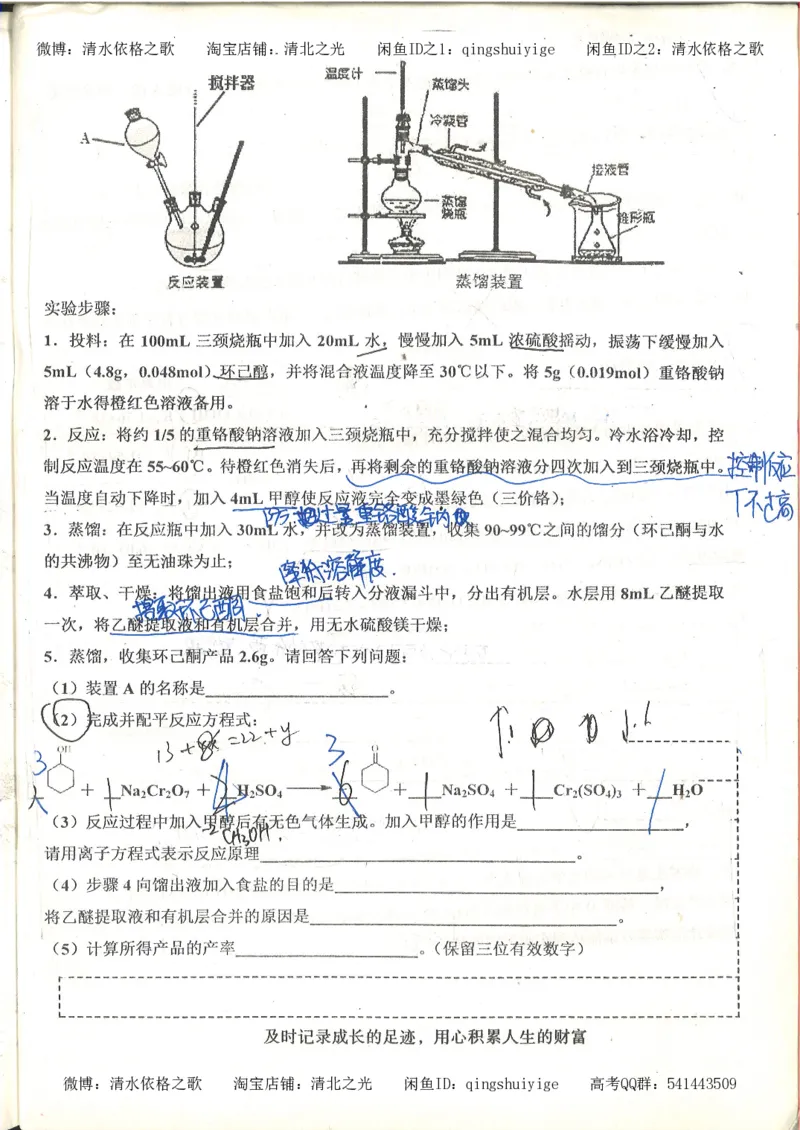 微博：清水依格之歌 淘宝店铺：清北之光 闲鱼ID之1：qingshuiyige 闲鱼ID之2：清水依格之歌
搅拌器
A
反应装置
温度计
蒸馏头
冷凝管
接液管
蒸馏
烧瓶
锥形瓶
蒸馏装置
实验步骤：
1．投料：在 100mL 三颈烧瓶中加入 20mL 水，慢慢加入 5mL 浓硫酸摇动，振荡下缓慢加入
5mL（4.8g，0.048mol）环己醇，并将混合液温度降至 30℃以下。将 5g（0.019mol）重铬酸钠
溶于水得橙红色溶液备用。
2．反应：将约 1/5 的重铬酸钠溶液加入三颈烧瓶中，充分搅拌使之混合均匀。冷水浴冷却，控
制反应温度在 55~60℃。待橙红色消失后，再将剩余的重铬酸钠溶液分四次加入到三颈烧瓶中。
控制反应
T不过高
当温度自动下降时，加入 4mL 甲醇使反应液完全变成墨绿色（三价铬）；
3．蒸馏：在反应瓶中加入 30mL 水，并改为蒸馏装置，收集 90~99℃之间的馏分（环己酮与水
的共沸物）至无油珠为止；
降低溶解度．
4．萃取、干燥：将馏出液用食盐饱和后转入分液漏斗中，分出有机层。水层用 8mL 乙醚提取
提取环己酮．
一次，将乙醚提取液和有机层合并，用无水硫酸镁干燥；
5．蒸馏，收集环己酮产品 2.6g。请回答下列问题：
（1）装置 A 的名称是____。
（2）完成并配平反应方程式：
3 OH + 1 Na₂Cr₂O₇ + H₂SO₄ → 3 O + 1 Na₂SO₄ + 1 Cr₂(SO₄)₃ + H₂O
（3）反应过程中加入甲醇后有无色气体生成。加入甲醇的作用是____，
CH₃OH．
请用离子方程式表示反应原理____。
（4）步骤 4 向馏出液加入食盐的目的是____，
将乙醚提取液和有机层合并的原因是____。
（5）计算所得产品的产率____。（保留三位有效数字）
及时记录成长的足迹，用心积累人生的财富
微博：清水依格之歌 淘宝店铺：清北之光 闲鱼ID：qingshuiyige 高考QQ群：541443509